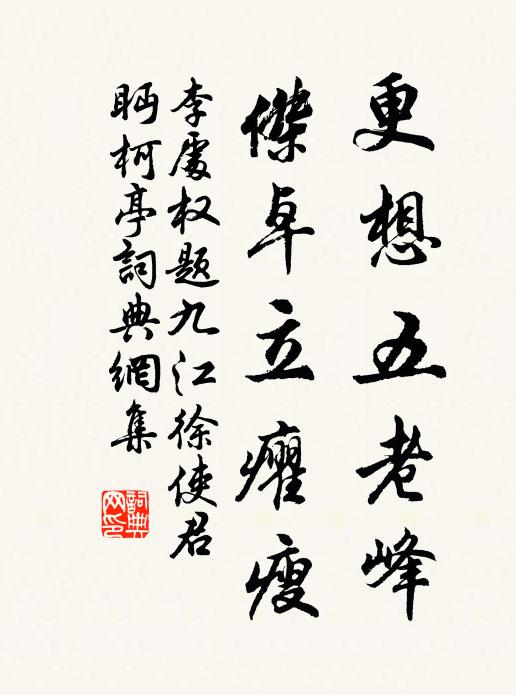 更想五老峰
傑卓立癯瘦
李處权题九江徐使君
眄柯亭詞典網集
詞典网印